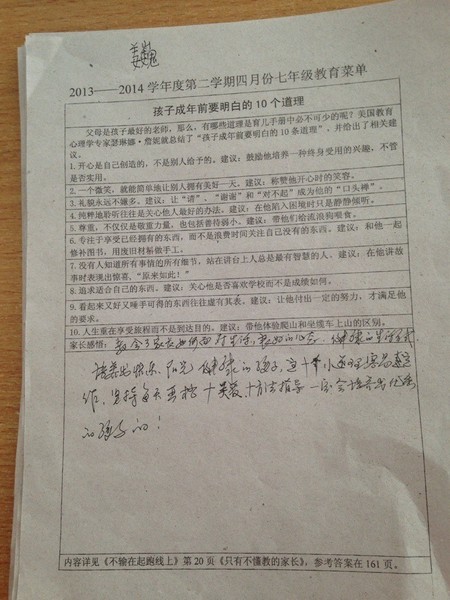 姜巍
2013——2014学年度第二学期四月份七年级教育菜单
孩子成年前要明白的10个道理
父母是孩子最好的老师,那么,有哪些道理是育儿手册中必不可少的呢?美国教育
心理学专家瑟琳娜·詹妮就总结了“孩子成年前要明白的10条道理”,并给出了相关建
议。
1.开心是自己创造的,不是别人给予的。建议:鼓励他培养一种终身受用的兴趣,不管
是否实用。
2.一个微笑,就能简单地让别人拥有美好一天。建议:称赞他开心时的笑容。
3.礼貌永远不嫌多。建议:让“请”、“谢谢”和“对不起”成为他的“口头禅”。
4.纯粹地聆听往往是关心他人最好的办法。建议:在他陷入困境时只是静静倾听。
5.尊重,不仅仅是敬重力量,也包括善待弱小。建议:带他们给流浪狗喂食。
6.专注于享受已经拥有的东西,而不是浪费时间关注自己没有的东西。建议:和他一起
修补图书,用废旧材料做手工。
7.没有人知道所有事情的所有细节,站在讲台上人总是最有智慧的人。建议:在他讲故
事时表现出惊喜,“原来如此!”
8.追求适合自己的东西。建议:关心他是否喜欢学校而不是成绩如何。
9.看起来又好又唾手可得的东西往往虚有其表。建议:让他付出一定的努力,才满足他
的要求。
10.人生重在享受旅程而不是到达目的。建议:带他体验爬山和坐缆车上山的区别。
家长感悟:教会了家长如何面对生活,
培养出快乐、阳光、健康的孩子,这十条小道理容易
作,坚持每天 十 方法指导一定会培养出优秀
的孩子的!
内容详见《不输在起跑线上》第20页《只有不懂教的家长》,参考答案在161页。